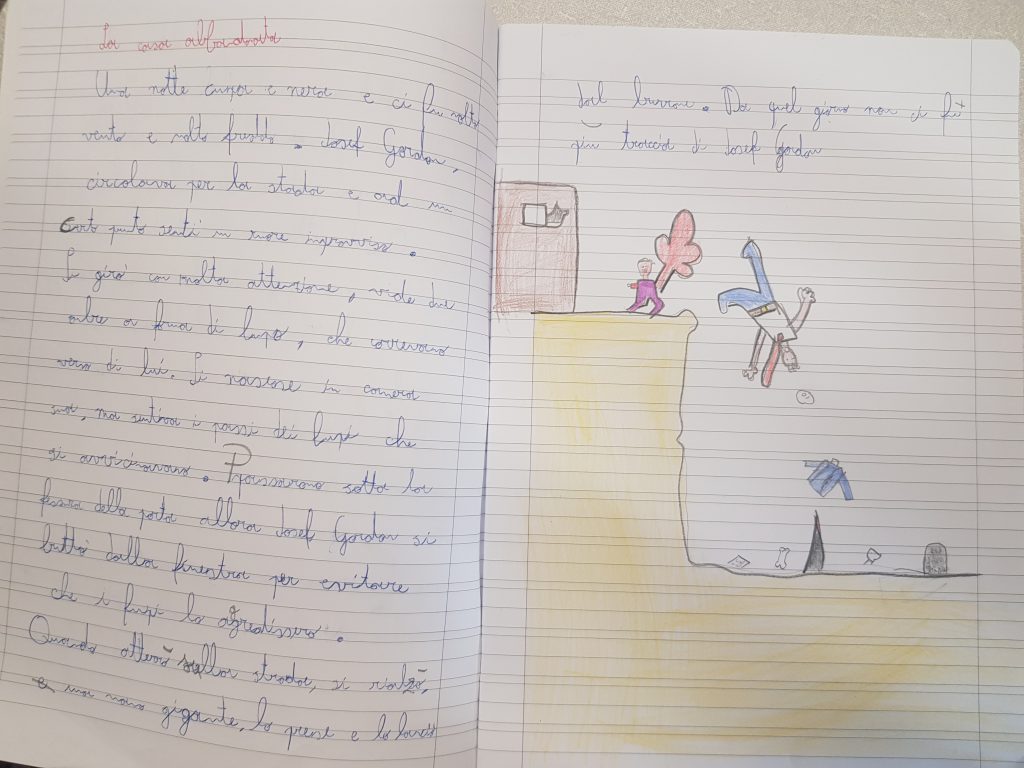 La casa abbandonata
Una notte cupa e nera e ci fu molto
vento e molto freddo. Josef Gordon,
circolava per la strada e ad un
certo punto sentì un rumore improvviso.
Si girò con molta attenzione, vide due
ombre a forma di lupo, che correvano
verso di lui. Si nascose in camera
sua, ma sentiva i passi dei lupi che
si avvicinavano. Passarono sotto la
fessura della porta allora Josef Gordon si
buttò dalla finestra per evitare
che i lupi lo agredissero.
Quando atterrò sulla strada, si rialzò,
una mano gigante, lo prese e lo lanciò
dal burrone. Da quel giorno non ci fù
più traccia di Josef Gordon